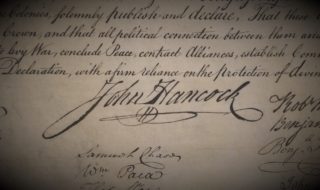 Colonies, solemnly publish and declare, That these
Crown, and that all political connection between them and
levy War, conclude Peace, contract Alliances, establish Com
Declaration, with a firm reliance on the protection of divin
John Hancock
Rob
Benjam
Benj
Samuel Chase
Wm Paca